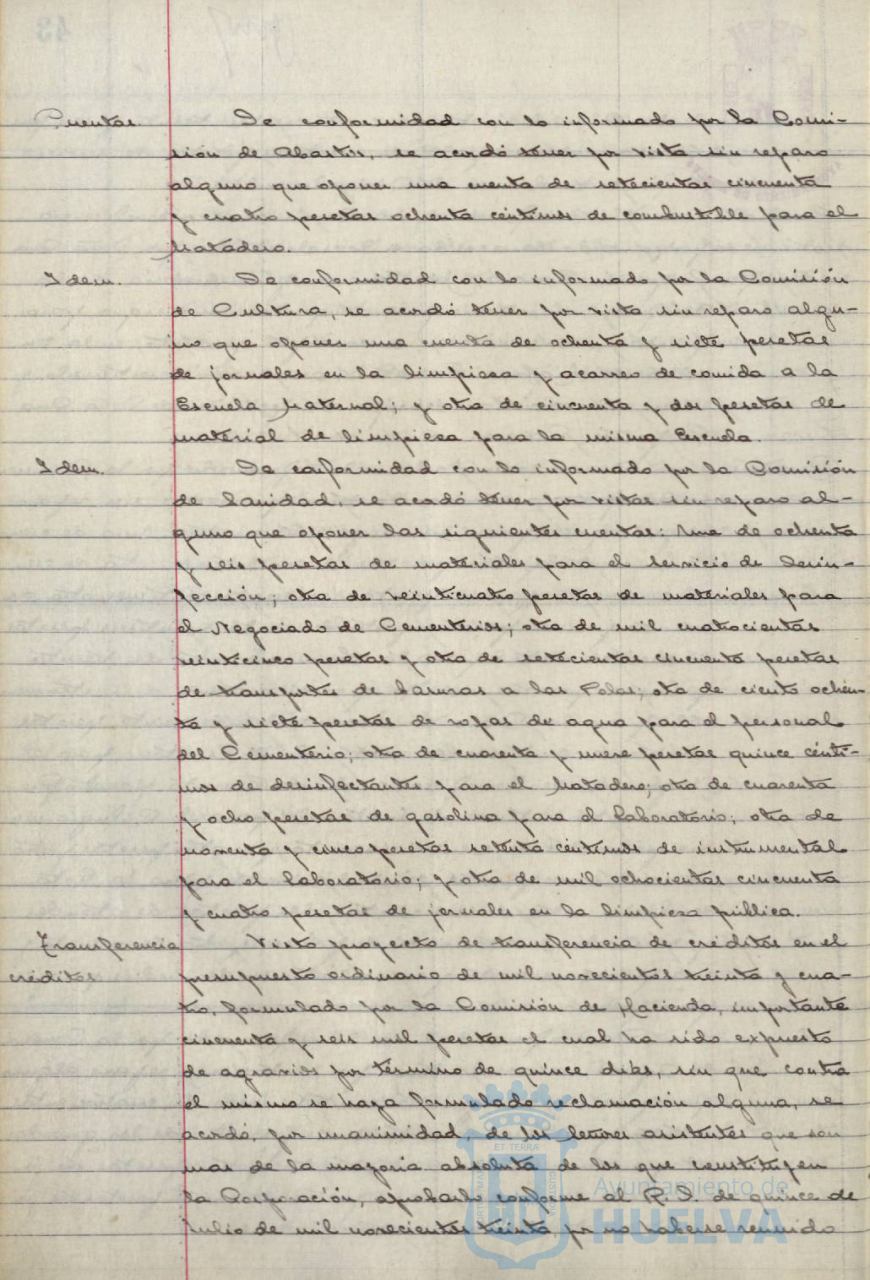 Cuentas. De conformidad con lo informado por la Comi-
sión de Abastos, se acordó tener por vista sin reparo
alguno que oponer una cuenta de setecientas cincuenta
y cuatro pesetas ochenta céntimos de combustible para el
Matadero.
Idem. De conformidad con lo informado por la Comisión
de Cultura, se acordó tener por vista sin reparo algu-
no que oponer una cuenta de ochenta y siete pesetas
de jornales en la limpieza y acarreo de comida a la
Escuela Maternal; y otra de cincuenta y dos pesetas de
material de limpieza para la misma Escuela.
Idem. De conformidad con lo informado por la Comisión
de Sanidad, se acordó tener por vistas sin reparo al-
guno que oponer las siguientes cuentas: Una de ochenta
y seis pesetas de materiales para el Servicio de Desin-
fección; otra de veinticuatro pesetas de materiales para
el Negociado de Cementerios; otra de mil cuatrocientas
veinticinco pesetas y otra de setecientas cincuenta pesetas
de transportes de basuras a las ; otra de ciento ochen-
ta y siete pesetas de ropas de agua para el personal
del Cementerio; otra de cuarenta y nueve pesetas quince cénti-
mos de desinfectantes para el Matadero; otra de cuarenta
y ocho pesetas de gasolina para el Laboratorio; otra de
noventa y cinco pesetas setenta céntimos de instrumental
para el Laboratorio; y otra de mil ochocientas cincuenta
y cuatro pesetas de jornales en la limpieza pública.
Transferencia Visto proyecto de transferencia de créditos en el
créditos presupuesto ordinario de mil novecientos treinta y cua-
tro, formulado por la Comisión de Hacienda, importante
cincuenta y seis mil pesetas el cual ha sido expuesto
de agravios por término de quince días, sin que contra
el mismo se haya formulado reclamación alguna, se
acordó, por unanimidad, de los Señores asistentes que son
mas de la mayoria absoluta de los que constituyen
la Corporación, aprobarlo conforme al R. D. de quince de
Julio de mil novecientos treinta, por no haberse reunido
Ayuntamiento de
HUELVA